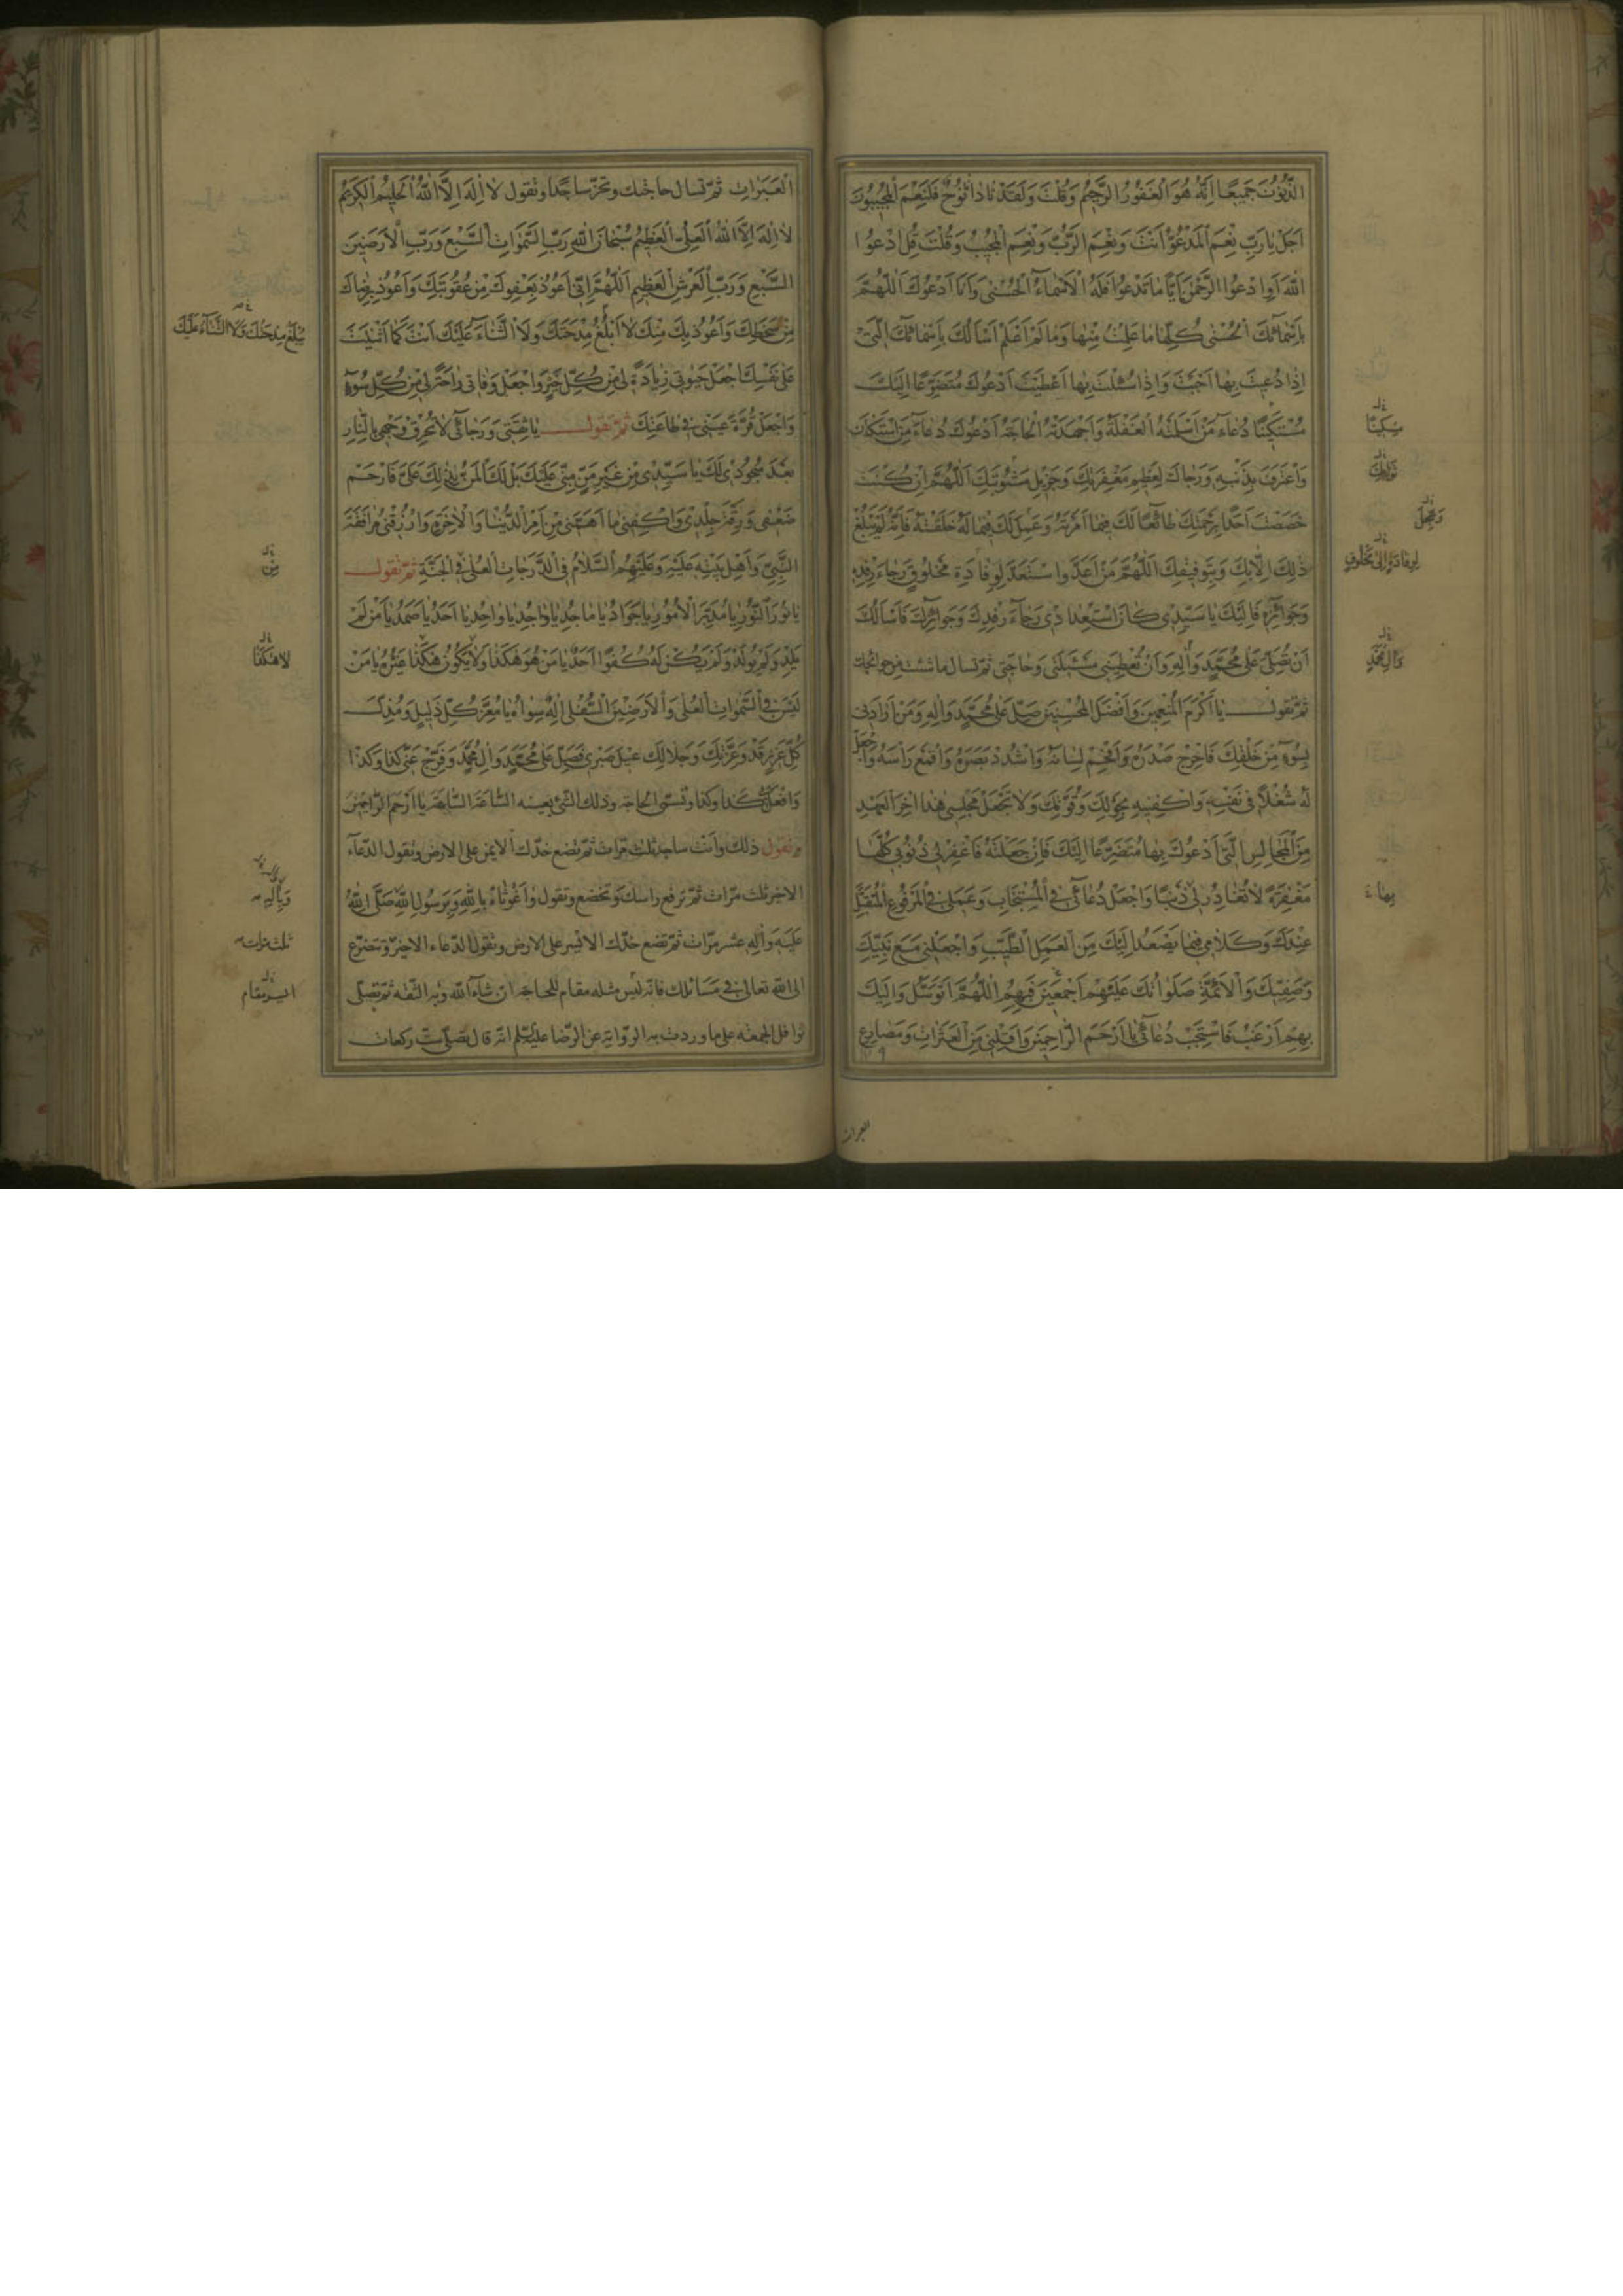 الذُّنُوبَ جَمِيعًا اِنَّهُ هُوَ الْغَفُورُ الرَّحِيمُ وَقُلْتَ وَلَقَدْ نَادَانَا نُوحٌ فَلَنِعْمَ الْمُجِيبُونَ
اَجَلْ يَا رَبِّ نِعْمَ الْمَدْعُوُّ اَنْتَ وَنِعْمَ الرَّبُّ وَنِعْمَ الْمُجِيبُ وَقُلْتَ قُلِ ادْعُوا
اللهَ اَوِ ادْعُوا الرَّحْمٰنَ اَيًّا مَا تَدْعُوا فَلَهُ الْاَسْمَاءُ الْحُسْنٰى وَاَنَا اَدْعُوكَ اَللّٰهُمَّ
بِاَسْمَائِكَ الْحُسْنٰى كُلِّهَا مَا عَلِمْتُ مِنْهَا وَمَا لَمْ اَعْلَمْ اَسْاَلُكَ بِاَسْمَائِكَ الَّتِي
اِذَا دُعِيتَ بِهَا اَجَبْتَ وَاِذَا سُئِلْتَ بِهَا اَعْطَيْتَ اَدْعُوكَ مُتَضَرِّعًا اِلَيْكَ
مُسْتَكِينًا دُعَاءَ مَنْ اَسْلَمَتْهُ الْغَفْلَةُ وَاَجْهَدَتْهُ الْحَاجَةُ اَدْعُوكَ دُعَاءَ مَنِ اسْتَكَانَ
وَاعْتَرَفَ بِذَنْبِهِ وَرَجَاكَ لِعَظِيمِ مَغْفِرَتِكَ وَجَزِيلِ مَثُوبَتِكَ اَللّٰهُمَّ اِنْ كُنْتَ
خَصَصْتَ اَحَدًا بِرَحْمَتِكَ طَائِعًا لَكَ فِيمَا اَمَرْتَهُ وَعَمِلَ لَكَ فِيمَا لَهُ خَلَقْتَهُ فَاِنَّهُ لَمْ يَبْلُغْ
ذٰلِكَ اِلَّا بِكَ وَبِتَوْفِيقِكَ اَللّٰهُمَّ مَنْ اَعَدَّ وَاسْتَعَدَّ لِوِفَادَةِ مَخْلُوقٍ رَجَاءَ رِفْدِهِ
وَجَوَائِزِهِ فَاِلَيْكَ يَا سَيِّدِي كَانَ اسْتِعْدَادِي رَجَاءَ رِفْدِكَ وَجَوَائِزِكَ فَاَسْاَلُكَ
اَنْ تُصَلِّيَ عَلٰى مُحَمَّدٍ وَاٰلِهِ وَاَنْ تُعْطِيَنِي مَسْئَلَتِي وَحَاجَتِي ثم تسال ما شئت من حوائجك
ثم تقول يَا اَكْرَمَ الْمُنْعِمِينَ وَاَفْضَلَ الْمُحْسِنِينَ صَلِّ عَلٰى مُحَمَّدٍ وَاٰلِهِ وَمَنْ اَرَادَنِي
بِسُوءٍ مِنْ خَلْقِكَ فَاَحْرِجْ صَدْرَهُ وَاَفْحِمْ لِسَانَهُ وَاسْدُدْ بَصَرَهُ وَاقْمَعْ رَاْسَهُ وَاجْعَلْ
لَهُ شُغْلًا فِي نَفْسِهِ وَاكْفِنِيهِ بِحَوْلِكَ وَقُوَّتِكَ وَلَا تَجْعَلْ مَجْلِسِي هٰذَا اٰخِرَ الْعَهْدِ
مِنَ الْمَجَالِسِ الَّتِي اَدْعُوكَ بِهَا مُتَضَرِّعًا اِلَيْكَ فَاِنْ جَعَلْتَهُ فَاغْفِرْ لِي ذُنُوبِي كُلَّهَا
مَغْفِرَةً لَا تُغَادِرُ لِي ذَنْبًا وَاجْعَلْ دُعَائِي فِي الْمُسْتَجَابِ وَعَمَلِي فِي الْمَرْفُوعِ الْمُتَقَبَّلِ
عِنْدَكَ وَكَلَامِي فِيمَا يَصْعَدُ اِلَيْكَ مِنَ الْعَمَلِ الطَّيِّبِ وَاجْعَلْنِي مَعَ نَبِيِّكَ
وَصَفِيِّكَ وَالْاَئِمَّةِ صَلَوَاتُكَ عَلَيْهِمْ اَجْمَعِينَ فَبِهِمُ اللّٰهُمَّ اَتَوَسَّلُ وَاِلَيْكَ
بِهِمْ اَرْغَبُ فَاسْتَجِبْ دُعَائِي يَا اَرْحَمَ الرَّاحِمِينَ وَاَقِلْنِي مِنَ الْعَثَرَاتِ وَمَصَارِعِ
العبرات
مِسْكِينًا
ثَوَابِكَ
وَعَجِّلْ
لِوِفَادَةٍ اِلٰى مَخْلُوقٍ
وَاٰلِ مُحَمَّدٍ
بِهَا
الْعَبَرَاتِ ثم تسال حاجتك وتخر ساجدا وتقول لَا اِلٰهَ اِلَّا اللهُ الْحَلِيمُ الْكَرِيمُ
لَا اِلٰهَ اِلَّا اللهُ الْعَلِيُّ الْعَظِيمُ سُبْحَانَ اللهِ رَبِّ السَّمٰوَاتِ السَّبْعِ وَرَبِّ الْاَرَضِينَ
السَّبْعِ وَرَبِّ الْعَرْشِ الْعَظِيمِ اَللّٰهُمَّ اِنِّي اَعُوذُ بِعَفْوِكَ مِنْ عُقُوبَتِكَ وَاَعُوذُ بِرِضَاكَ
مِنْ سَخَطِكَ وَاَعُوذُ بِكَ مِنْكَ لَا اَبْلُغُ مِدْحَتَكَ وَلَا الثَّنَاءَ عَلَيْكَ اَنْتَ كَمَا اَثْنَيْتَ
عَلٰى نَفْسِكَ اجْعَلْ حَيٰوتِي زِيَادَةً لِي مِنْ كُلِّ خَيْرٍ وَاجْعَلْ وَفَاتِي رَاحَةً لِي مِنْ كُلِّ سُوءٍ
وَاجْعَلْ قُرَّةَ عَيْنِي فِي طَاعَتِكَ ثم تقول يَا ثِقَتِي وَرَجَائِي لَا تُحْرِقْ وَجْهِي بِالنَّارِ
بَعْدَ سُجُودِي لَكَ يَا سَيِّدِي مِنْ غَيْرِ مَنٍّ مِنِّي عَلَيْكَ بَلْ لَكَ الْمَنُّ بِذٰلِكَ عَلَيَّ فَارْحَمْ
ضَعْفِي وَرِقَّةَ جِلْدِي وَاكْفِنِي مَا اَهَمَّنِي مِنْ اَمْرِ الدُّنْيَا وَالْاٰخِرَةِ وَارْزُقْنِي مُرَافَقَةَ
النَّبِيِّ وَاَهْلِ بَيْتِهِ عَلَيْهِ وَعَلَيْهِمُ السَّلَامُ فِي الدَّرَجَاتِ الْعُلٰى فِي الْجَنَّةِ ثم تقول
يَا نُورَ النُّورِ يَا مُدَبِّرَ الْاُمُورِ يَا جَوَادُ يَا مَاجِدُ يَا وَاجِدُ يَا وَاحِدُ يَا اَحَدُ يَا صَمَدُ يَا مَنْ لَمْ
يَلِدْ وَلَمْ يُولَدْ وَلَمْ يَكُنْ لَهُ كُفُوًا اَحَدٌ يَا مَنْ هُوَ هٰكَذَا وَلَا يَكُونُ هٰكَذَا غَيْرُهُ يَا مَنْ
لَيْسَ فِي السَّمٰوَاتِ الْعُلٰى وَالْاَرَضِينَ السُّفْلٰى اِلٰهٌ سِوَاهُ يَا مُعِزَّ كُلِّ ذَلِيلٍ وَمُذِلَّ
كُلِّ عَزِيزٍ قَدْ وَعِزَّتِكَ وَجَلَالِكَ عِيلَ صَبْرِي فَصَلِّ عَلٰى مُحَمَّدٍ وَاٰلِ مُحَمَّدٍ وَفَرِّجْ عَنِّي كذا وكذا
وَافْعَلْ بِي كذا وكذا وتسمّي الحاجة وذلك الشيء بعينه السَّاعَةَ السَّاعَةَ يَا اَرْحَمَ الرَّاحِمِينَ
وتقول ذلك وانت ساجد ثلث مرّات ثم تضع خدّك الايمن على الارض وتقول الدعاء
الاخير ثلث مرّات ثم ترفع راسك وتخضع وتقول وَاغَوْثَاهُ بِاللهِ وَبِرَسُولِ اللهِ صَلَّى اللهُ
عَلَيْهِ وَاٰلِهِ عشر مرّات ثم تضع خدّك الايسر على الارض وتقول الدعاء الاخير وتتضرّع
الى الله تعالى في مسائلك فانّه ليس مثله مقام للحاجة ان شاء الله وبه الثقة ثم تصلّي
نوافل الجمعة على ما وردت به الرواية عن الرضا عليه السلم انّه قال تصلّي ستّ ركعات
يَبْلُغُ مِدْحَتَكَ وَلَا الثَّنَاءَ عَلَيْكَ
مِنْ
لَا هٰكَذَا
وَبِاٰلِهِ
ثلث مرات